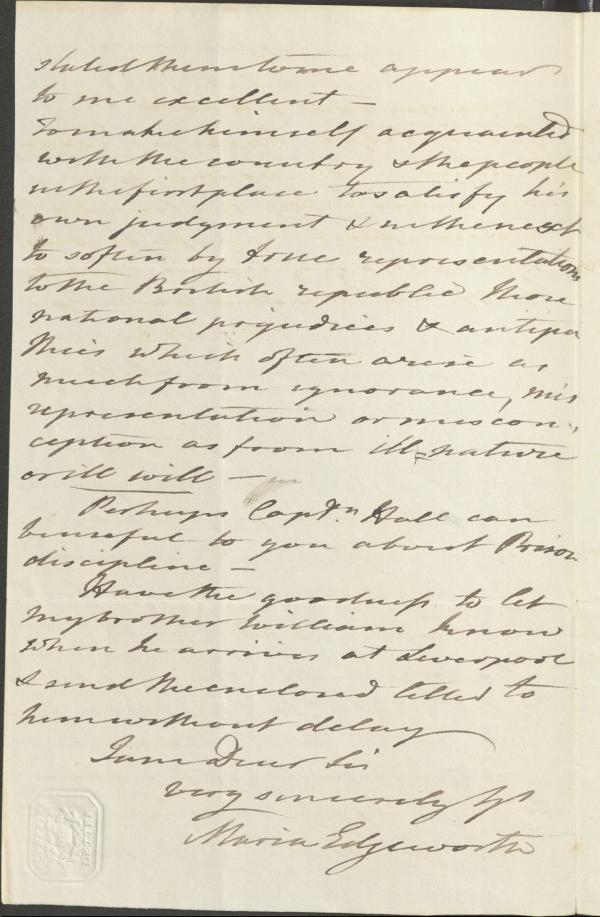 stated them to me appear
to me excellent –
To make himself acquainted
with the country & the people
in the first place to satisfy his
own judgment & in the next
to soften by true representations
to the British republic those
national prejudices & antipa
thies which often arise as
much from ignorance, mis
representation or miscon,
ception as from ill-nature
or ill will –
Perhaps Captn. Hall can
be useful to you about Prison
discipline –
Have the goodness to let
my brother William know
when he arrives at Liverpool
& send the enclosed letter to
him without delay
I am Dear Sir
very sincerely yrs
Maria Edgeworth